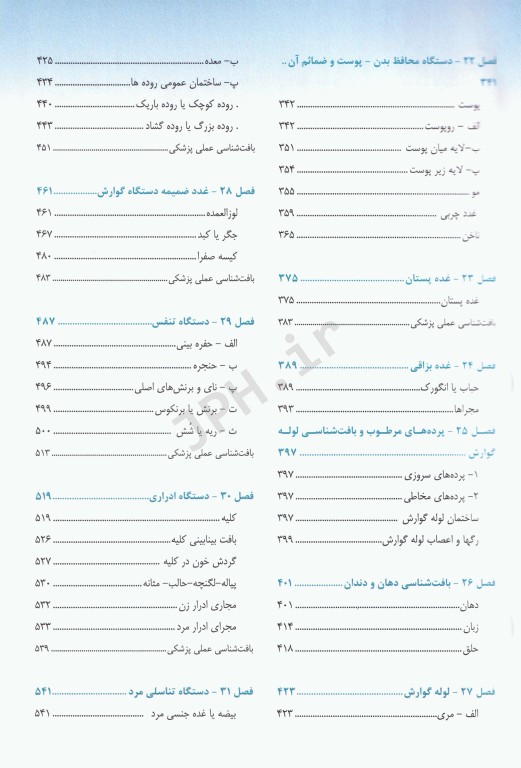 فصل ۲۲ - دستگاه محافظ بدن - پوست و ضمائم آن ..
۳۴۱
پوست ............ ۳۴۲
الف - روپوست ............ ۳۴۲
ب-لایه میان پوست ............ ۳۵۱
پ- لایه زیر پوست ............ ۳۵۴
مو ............ ۳۵۵
غدد چربی ............ ۳۵۹
ناخن ............ ۳۶۵
فصل ۲۳ - غده پستان ............ ۳۷۵
غده پستان ............ ۳۷۵
بافت‌شناسی عملی پزشکی ............ ۳۸۳
فصل ۲۴ - غده بزاقی ............ ۳۸۹
حباب یا انگورک ............ ۳۸۹
مجراها ............ ۳۹۳
فصل ۲۵ - پرده‌های مرطوب و بافت‌شناسی لوله
گوارش ............ ۳۹۷
۱- پرده‌های سروزی ............ ۳۹۷
۲- پرده‌های مخاطی ............ ۳۹۷
ساختمان لوله گوارش ............ ۳۹۷
رگها و اعصاب لوله گوارش ............ ۳۹۹
فصل ۲۶ - بافت‌شناسی دهان و دندان ............ ۴۰۱
دهان ............ ۴۰۱
زبان ............ ۴۱۴
حلق ............ ۴۱۸
فصل ۲۷ - لوله گوارش ............ ۴۲۳
الف - مری ............ ۴۲۳
ب- معده ............ ۴۲۵
پ- ساختمان عمومی روده ها ............ ۴۳۴
. روده کوچک یا روده باریک ............ ۴۴۰
. روده بزرگ یا روده گشاد ............ ۴۴۳
بافت‌شناسی عملی پزشکی ............ ۴۵۱
فصل ۲۸ - غدد ضمیمه دستگاه گوارش ............ ۴۶۱
لوزالعمده ............ ۴۶۱
جگر یا کبد ............ ۴۶۷
کیسه صفرا ............ ۴۸۰
بافت‌شناسی عملی پزشکی ............ ۴۸۳
فصل ۲۹ - دستگاه تنفس ............ ۴۸۷
الف - حفره بینی ............ ۴۸۷
ب - حنجره ............ ۴۹۴
پ - نای و برنش‌های اصلی ............ ۴۹۶
ت - برنش یا برنکوس ............ ۴۹۹
ث - ریه یا شُش ............ ۵۰۰
بافت‌شناسی عملی پزشکی ............ ۵۱۳
فصل ۳۰ - دستگاه ادراری ............ ۵۱۹
کلیه ............ ۵۱۹
بافت بینابینی کلیه ............ ۵۲۶
گردش خون در کلیه ............ ۵۲۷
پیاله-لگنچه-حالب- مثانه ............ ۵۳۰
مجاری ادرار زن ............ ۵۳۲
مجرای ادرار مرد ............ ۵۳۳
بافت‌شناسی عملی پزشکی ............ ۵۳۹
فصل ۳۱ - دستگاه تناسلی مرد ............ ۵۴۱
بیضه یا غده جنسی مرد ............ ۵۴۱
JPH.ir